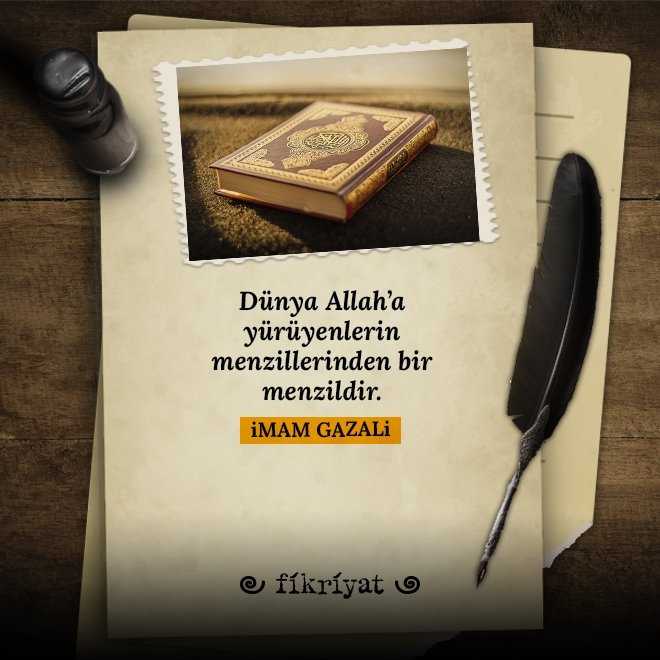 Dünya Allah’a
yürüyenlerin
menzillerinden bir
menzildir.
iMAM GAZALi
fíkríyat